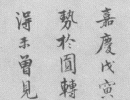 嘉慶戊寅
勢於圓轉
得未曽見